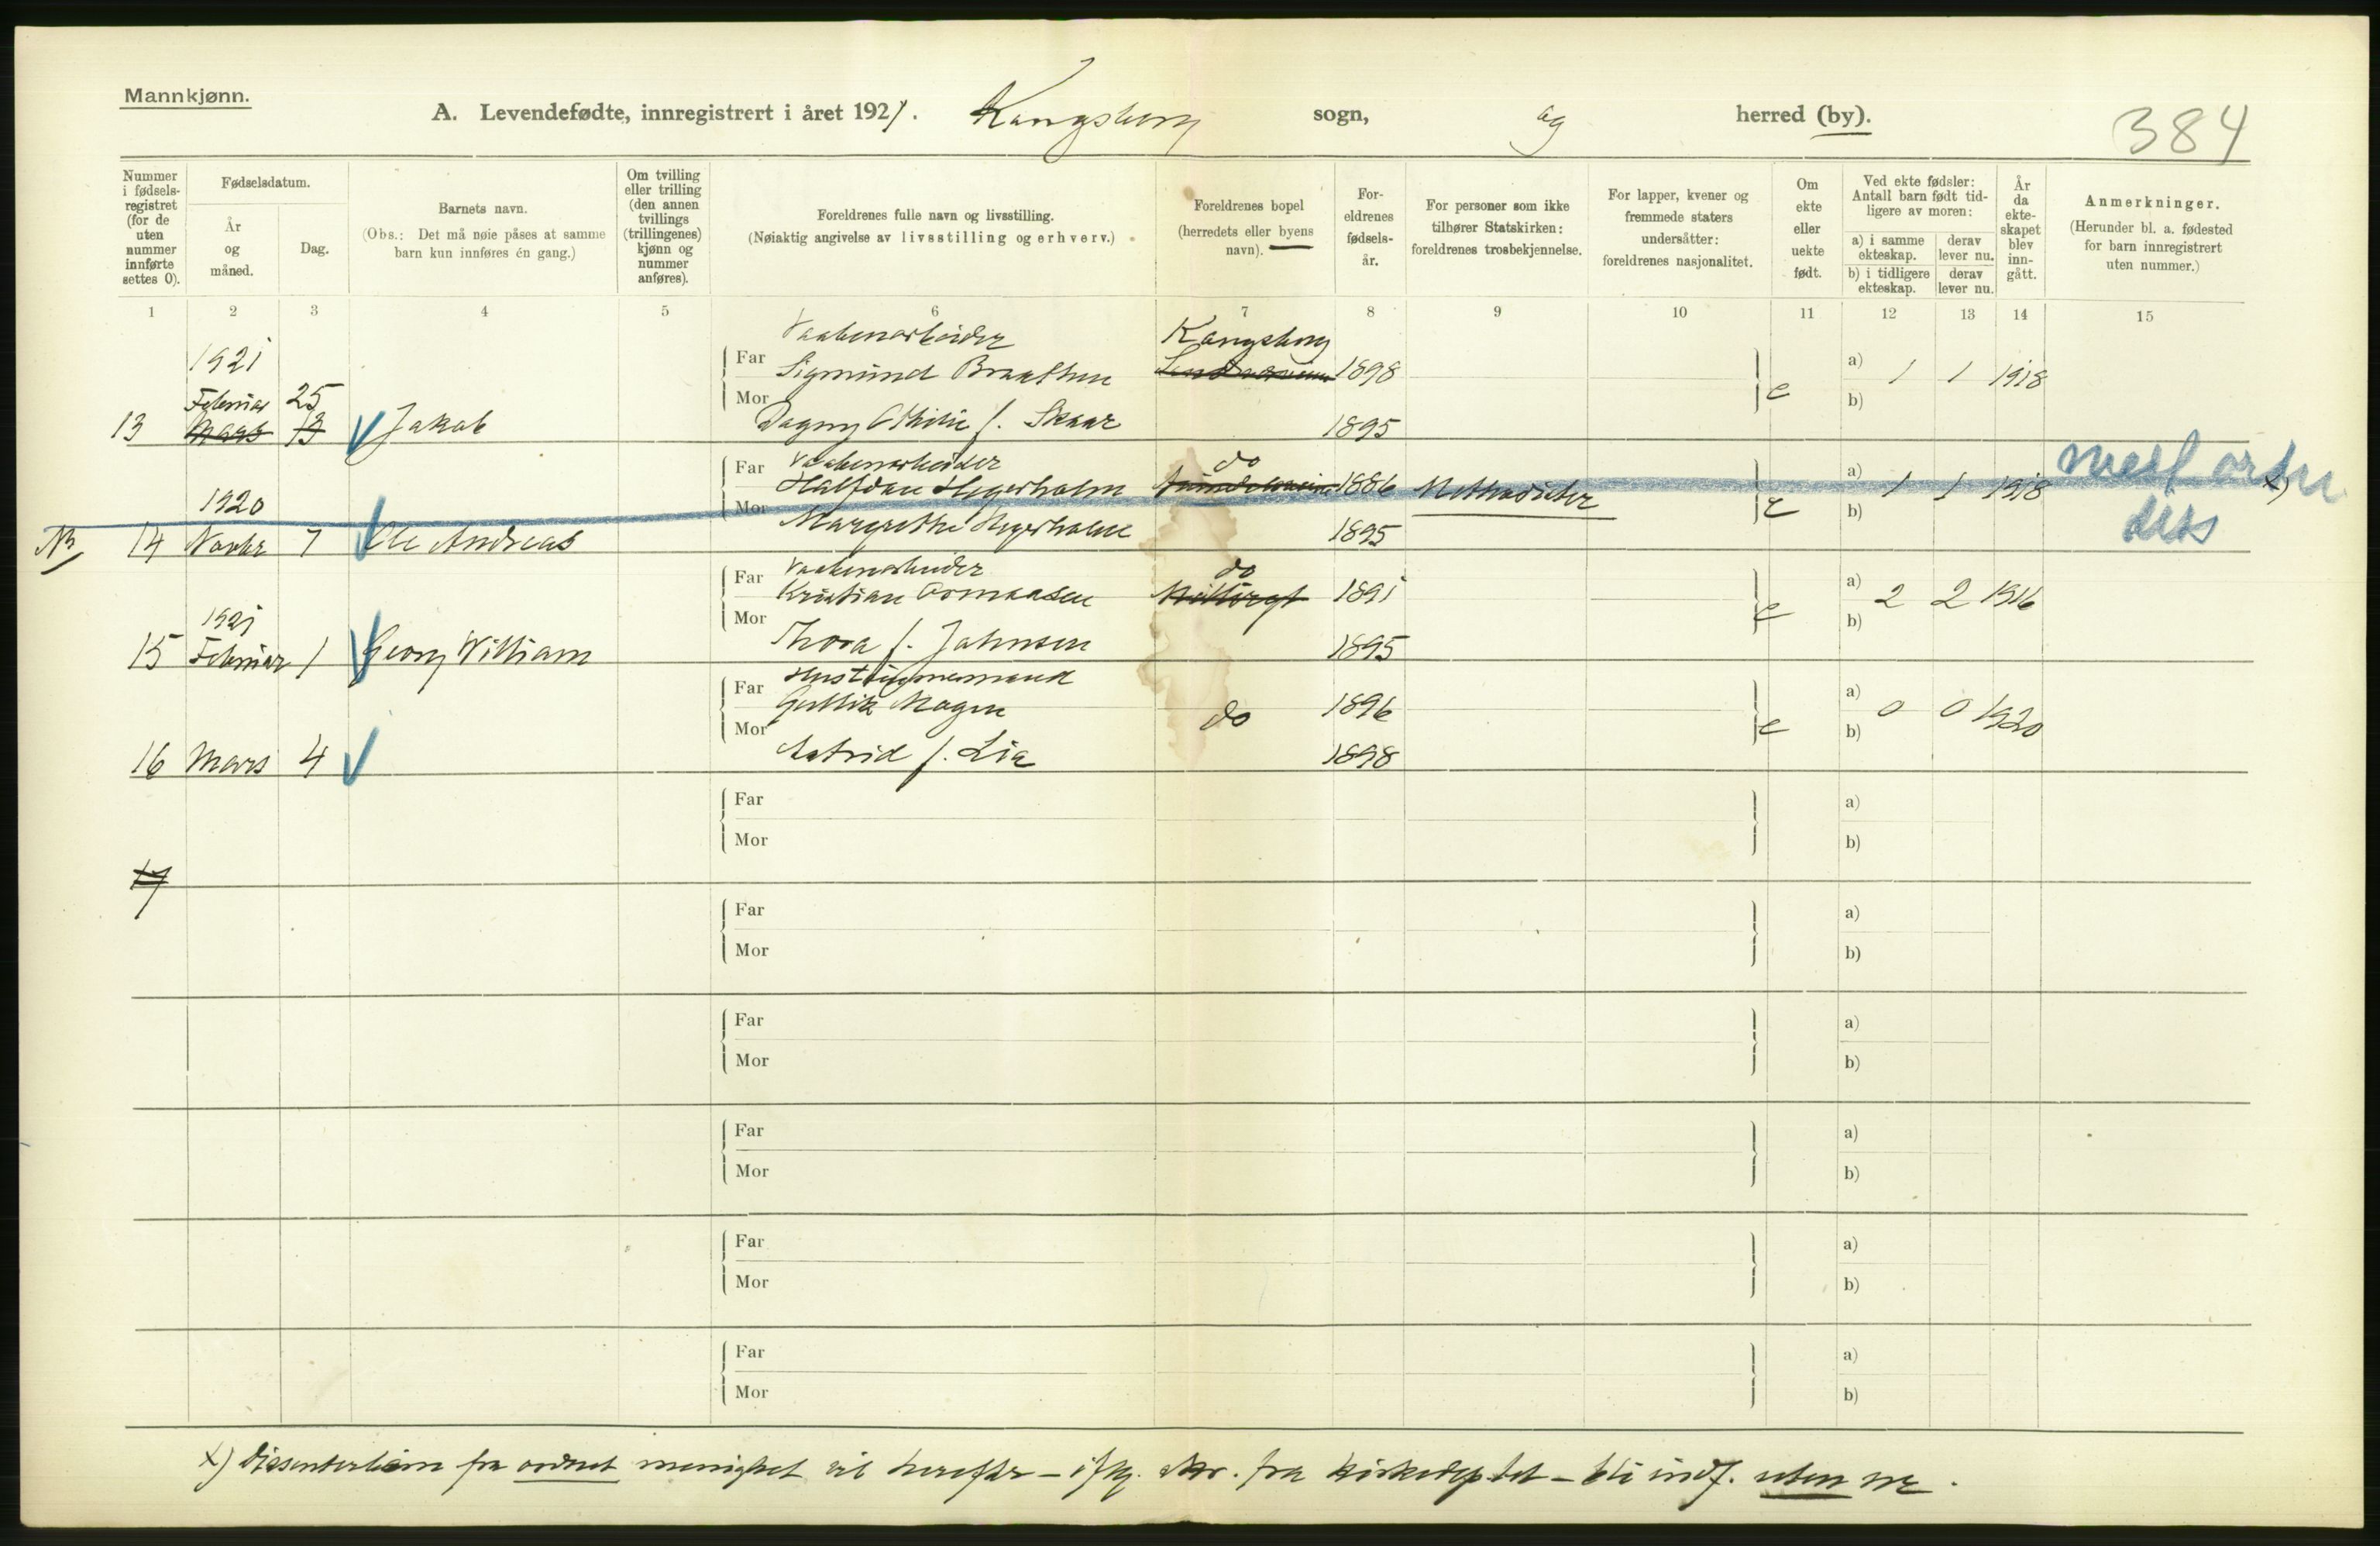 Mannkjønn.
A. Levendefødte, innregistrert i året 1921. Kongsberg sogn, og herred (by).
384
Nummer i fødsels-registret (for de uten nummer innførte settes 0).
Fødselsdatum.
År og måned.
Dag.
Barnets navn.
(Obs.: Det må nøie påses at samme barn kun innføres én gang.)
Om tvilling eller trilling (den annen tvillings (trillingenes) kjønn og nummer anføres).
Foreldrenes fulle navn og livsstilling.
(Nøiaktig angivelse av livsstilling og erhverv.)
Foreldrenes bopel (herredets eller byens navn).
For-eldrenes fødsels-år.
For personer som ikke tilhører Statskirken: foreldrenes trosbekjennelse.
For lapper, kvener og fremmede staters undersåtter: foreldrenes nasjonalitet.
Om ekte eller uekte født.
Ved ekte fødsler: Antall barn født tid-ligere av moren:
a) i samme ekteskap.
derav lever nu.
b) i tidligere ekteskap.
derav lever nu.
År da ekte-skapet blev inn-gått.
Anmerkninger.
(Herunder bl. a. fødested for barn innregistrert uten nummer.)
1 2 3 4 5 6 7 8 9 10 11 12 13 14 15
Vaabenarbeider Kongsberg
1921 Far Sigmund Braathen 1898 e a) 1 1 1918
Februar 25 Mor b)
13 Mars 13 Jakob Dagny Othilie f. Skaar 1895
Far Vaabenarbeider do
Halfdan Hegerholm 1886 Methodister e a) 1 1 1918 x)
1920 Mor b)
NB 14 Novbr 7 Ole Andreas Margrethe Hegerholm 1895
diss
Far Vaabenarbeider do
Kristian Aamaasen 1891 e a) 2 2 1916
1921 Mor b)
15 Februar 1 Georg William Thora f. Jahnsen 1895
Far Hustømmermand
Gullik Mogen do 1896 e a) 0 0 1920
Mor b)
16 Mars 4 Astrid f. Lia 1898
Far a)
Mor b)
17
Far a)
Mor b)
Far a)
Mor b)
Far a)
Mor b)
Far a)
Mor b)
Far a)
Mor b)
x) Dissenterbarn fra ordnet menighet vil herefter – ifølg. skr. fra Kirkedeptet – bli indf. uten nr.